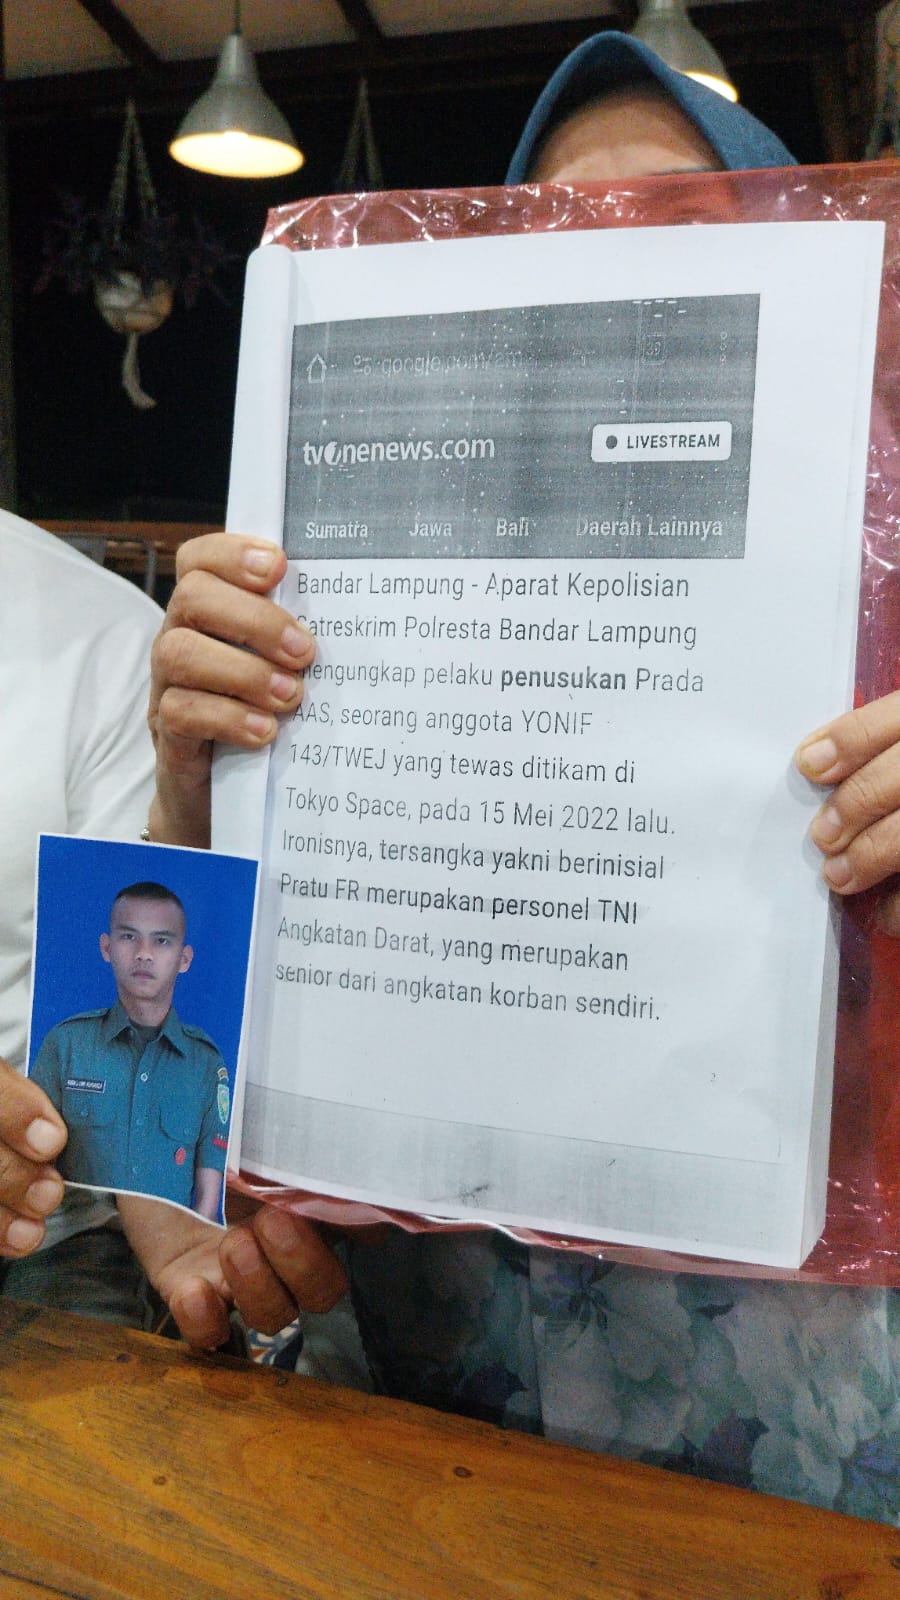 tvonenews.com
LIVESTREAM
Sumatra Jawa Bali Daerah Lainnya
Bandar Lampung - Aparat Kepolisian
Satreskrim Polresta Bandar Lampung
mengungkap pelaku penusukan Prada
AAS, seorang anggota YONIF
143/TWEJ yang tewas ditikam di
Tokyo Space, pada 15 Mei 2022 lalu.
Ironisnya, tersangka yakni berinisial
Pratu FR merupakan personel TNI
Angkatan Darat, yang merupakan
senior dari angkatan korban sendiri.
2